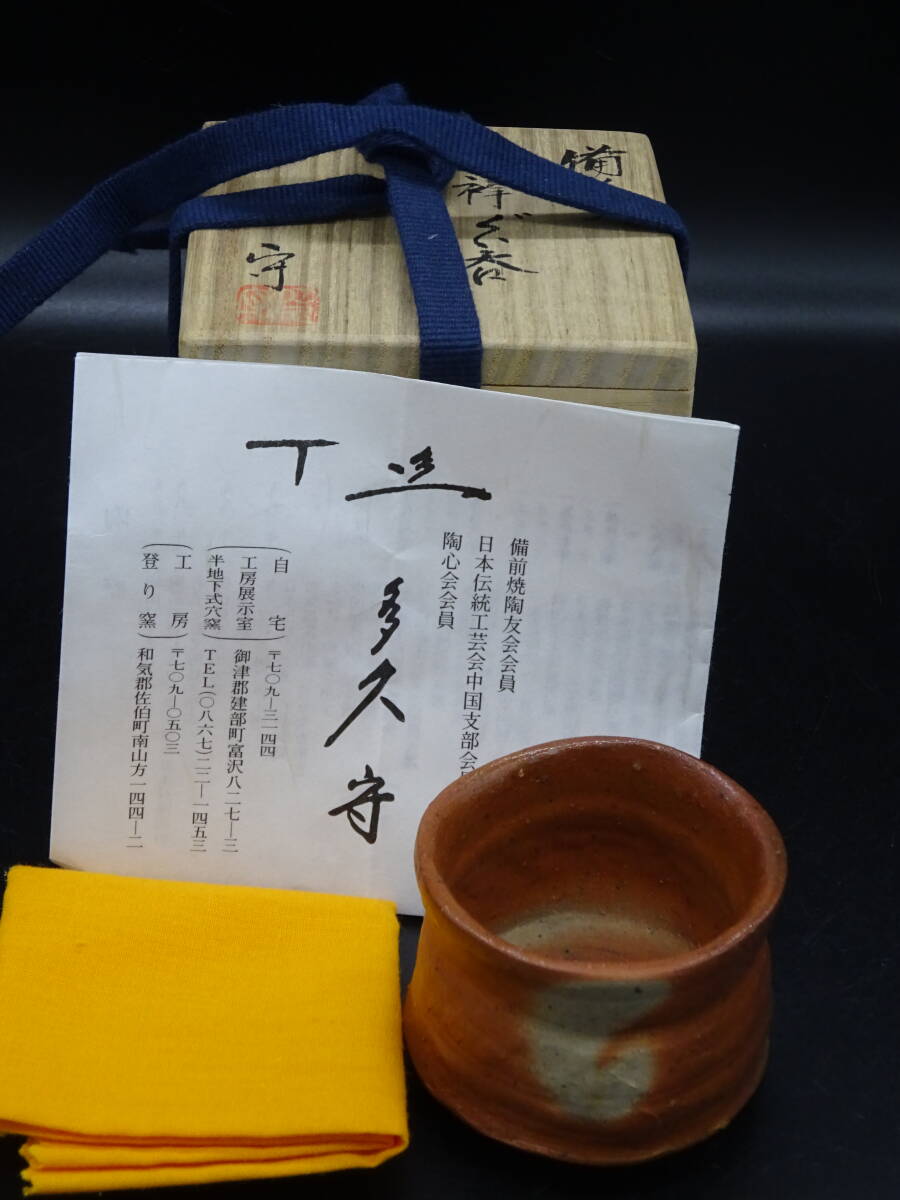 備
祥ぐ呑
守
備前焼陶友会会員
日本伝統工芸会中国支部会
陶心会会員
多久守
(自宅)
〒七〇九―三一四四
(工房展示室
半地下式穴窯)
御津郡建部町富沢八二七―三
TEL(〇八六七)二二―一四五三
(工房)
〒七〇九―〇五〇三
(登り窯)
和気郡佐伯町南山方一四四―二